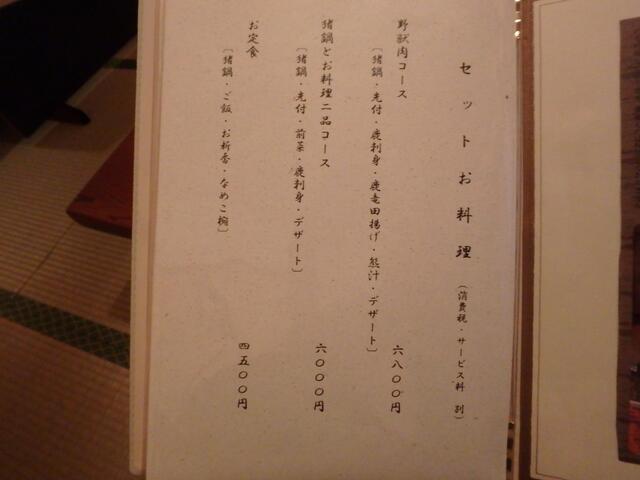 セットお料理（消費税・サービス料 別）
野獣肉コース 六八〇〇円
〔猪鍋・先付・鹿刺身・鹿竜田揚げ・熊汁・デザート〕
猪鍋とお料理二品コース 六〇〇〇円
〔猪鍋・先付・前菜・鹿刺身・デザート〕
お定食 四五〇〇円
〔猪鍋・ご飯・お新香・なめこ椀〕